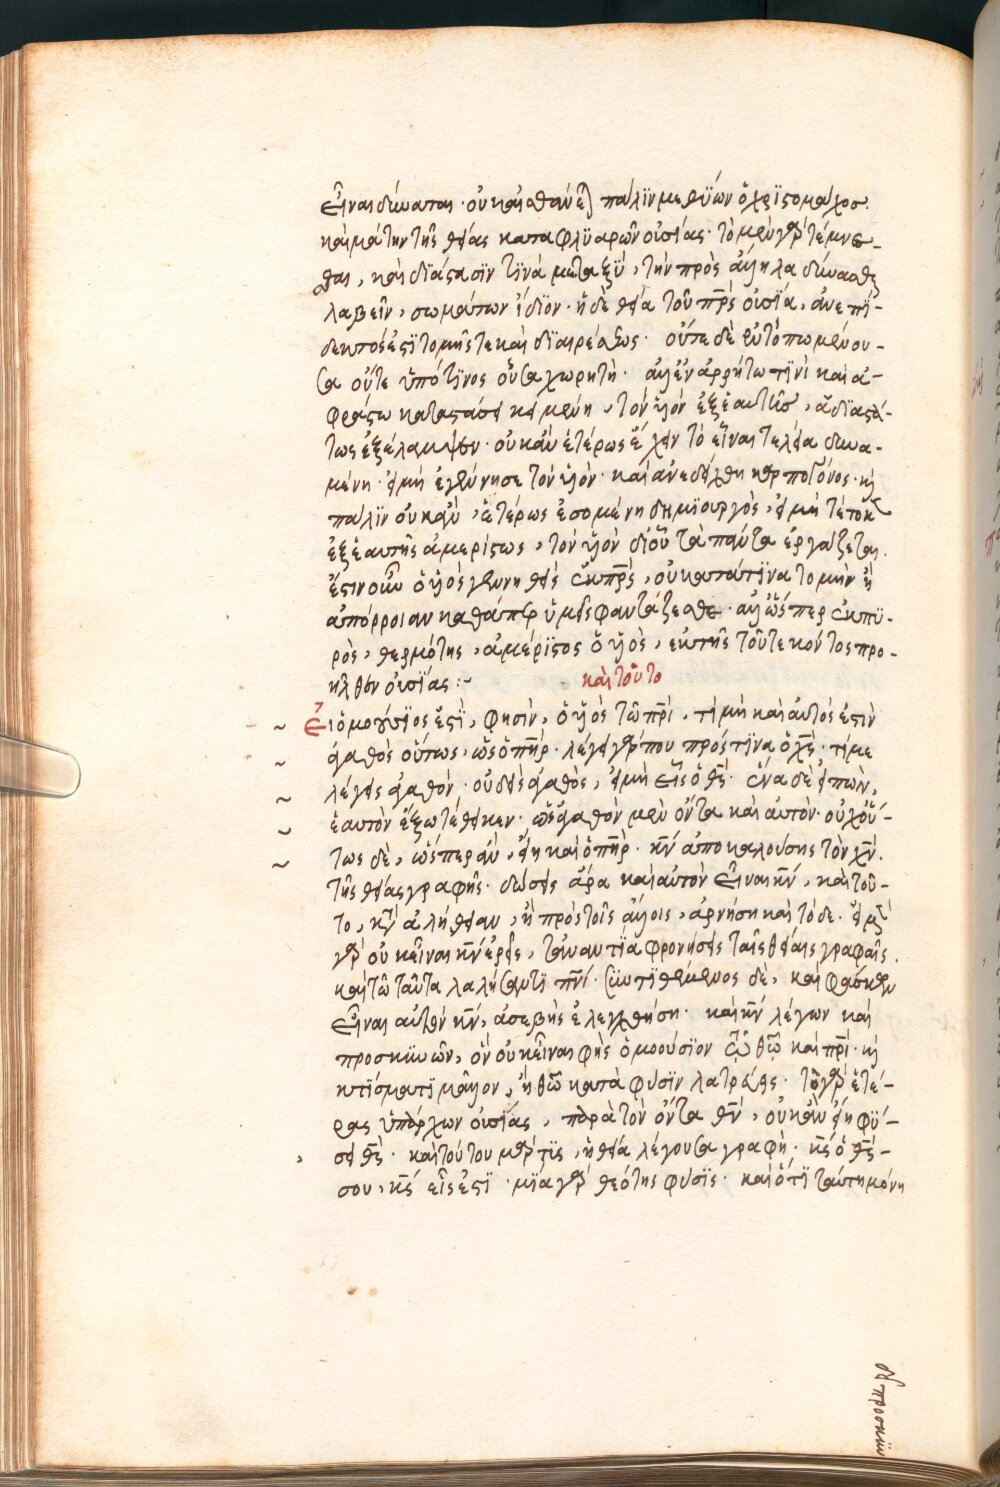 εἶναι δύναται· οὐκ αἰσθάνεται πάλιν μεθ' ὑῶν ὁ χριστομάχος.
καὶ μάτην τῆς θείας καταφλυαρῶν οὐσίας· τὸ μὲν γὰρ τέμνεσ-
θαι, καὶ διάστασίν τινὰ μεταξὺ, τὴν πρὸς ἄλληλα δύνασθαι
λαβεῖν, σωμάτων ἴδιον· ἡ δὲ θεία τοῦ πρς οὐσία, ἀνεπί-
δεκτός ἐστι τομῆς τε καὶ διαιρέσεως· οὔτε δὲ ἐν τόπω μένου-
σα οὔτε ὑπό τινος οὖσα χωρητὴ· ἀλλ' ἐν ἀρρήτω τινὶ καὶ ἀ-
φράστω καταστάσει κειμένη, τὸν υἱὸν ἐξ ἑαυτῆς, ἀδιαστά-
τως ἐξέλαμψεν· οὐκ ἂν ἑτέρως ἔχειν τὸ εἶναι τελεία δυνα-
μένη· εἰ μὴ ἐγέννησε τὸν υἱὸν· καὶ ἀνεδείχθη καρποτόνος· καὶ
πάλιν οὐκ ἂν, ἑτέρως ἐσομένη δημιουργὸς, εἰ μὴ τέτοκε
ἐξ ἑαυτῆς ἀμερίστως, τὸν υἱὸν δι' οὗ τὰ πάντα ἐργάζεται.
ἔστιν οὖν ὁ υἱὸς γεννηθεὶς ἐκ πρς, οὐ κατά τινα τομὴν ἢ
ἀπόρροιαν καθάπερ ὑμεῖς φαντάζεσθε· ἀλλ' ὥσπερ ἐκ πυ-
ρὸς, θερμότης, ἀμέριστος ὁ υἱὸς, ἐκ τῆς τοῦ τεκόντος προ-
ῆλθεν οὐσίας :~ καὶ τοῦτο
Εἰ ὁμοούσιος ἐστὶ, φησὶν, ὁ υἱὸς τῶ πρι, τί μὴ καὶ αὐτός ἐστιν
ἀγαθὸς οὕτως, ὡς ὁ πηρ· λέγει γάρ που πρός τινα ὁ χς· τί με
λέγεις ἀγαθὸν· οὐδεὶς ἀγαθὸς, εἰ μὴ εἷς ὁ θς· ἕνα δὲ εἰπὼν,
ἑαυτὸν ἔξω τέθεικεν· ὡς ἀγαθὸν μὲν ὄντα καὶ αὐτὸν· οὐχ οὕ-
τως δὲ, ὥσπερ ἂν, εἴη καὶ ὁ πηρ· κν ἀποκαλούσης τὸν χν.
τῆς θείας γραφῆς· δώσεις ἄρα καὶ αὐτὸν εἶναι κν, καὶ τοῦ-
το, κατ' ἀλήθειαν, ἢ πρὸς τοῖς ἄλλοις, ἀρνήση καὶ τόδε· εἰ μὲν
γὰρ οὐκ εἶναι κν ἐρεῖς, τἀναντία φρονήσεις ταῖς θείαις γραφαῖς.
καὶ τῶ ταῦτα λαλήσαντι πνι· συντιθέμενος δὲ, καὶ φάσκων
εἶναι αὐτὸν κν, ἀσεβὴς ἐλεγχθήση· καὶ κν λέγων καὶ
προσκυνῶν, ὃν οὐκ εἶναι φὴς ὁμοούσιον τῶ θῶ καὶ πρι· καὶ
κτίσματι μᾶλλον, ἢ θῶ κατὰ φύσιν λατρεύεις· τὸ γὰρ ἑτέ-
ρας ὑπάρχων οὐσίας, παρὰ τὸν ὄντα θν, οὐκ ἂν εἴη φύ-
σει θς· καὶ τούτου μάρτυς, ἡ θεία λέγουσα γραφὴ· κς ὁ θς
σου, κς εἷς ἐστι· μία γὰρ θεότης φύσις· καὶ ὅτι ταύτη μόνη
προσκυν